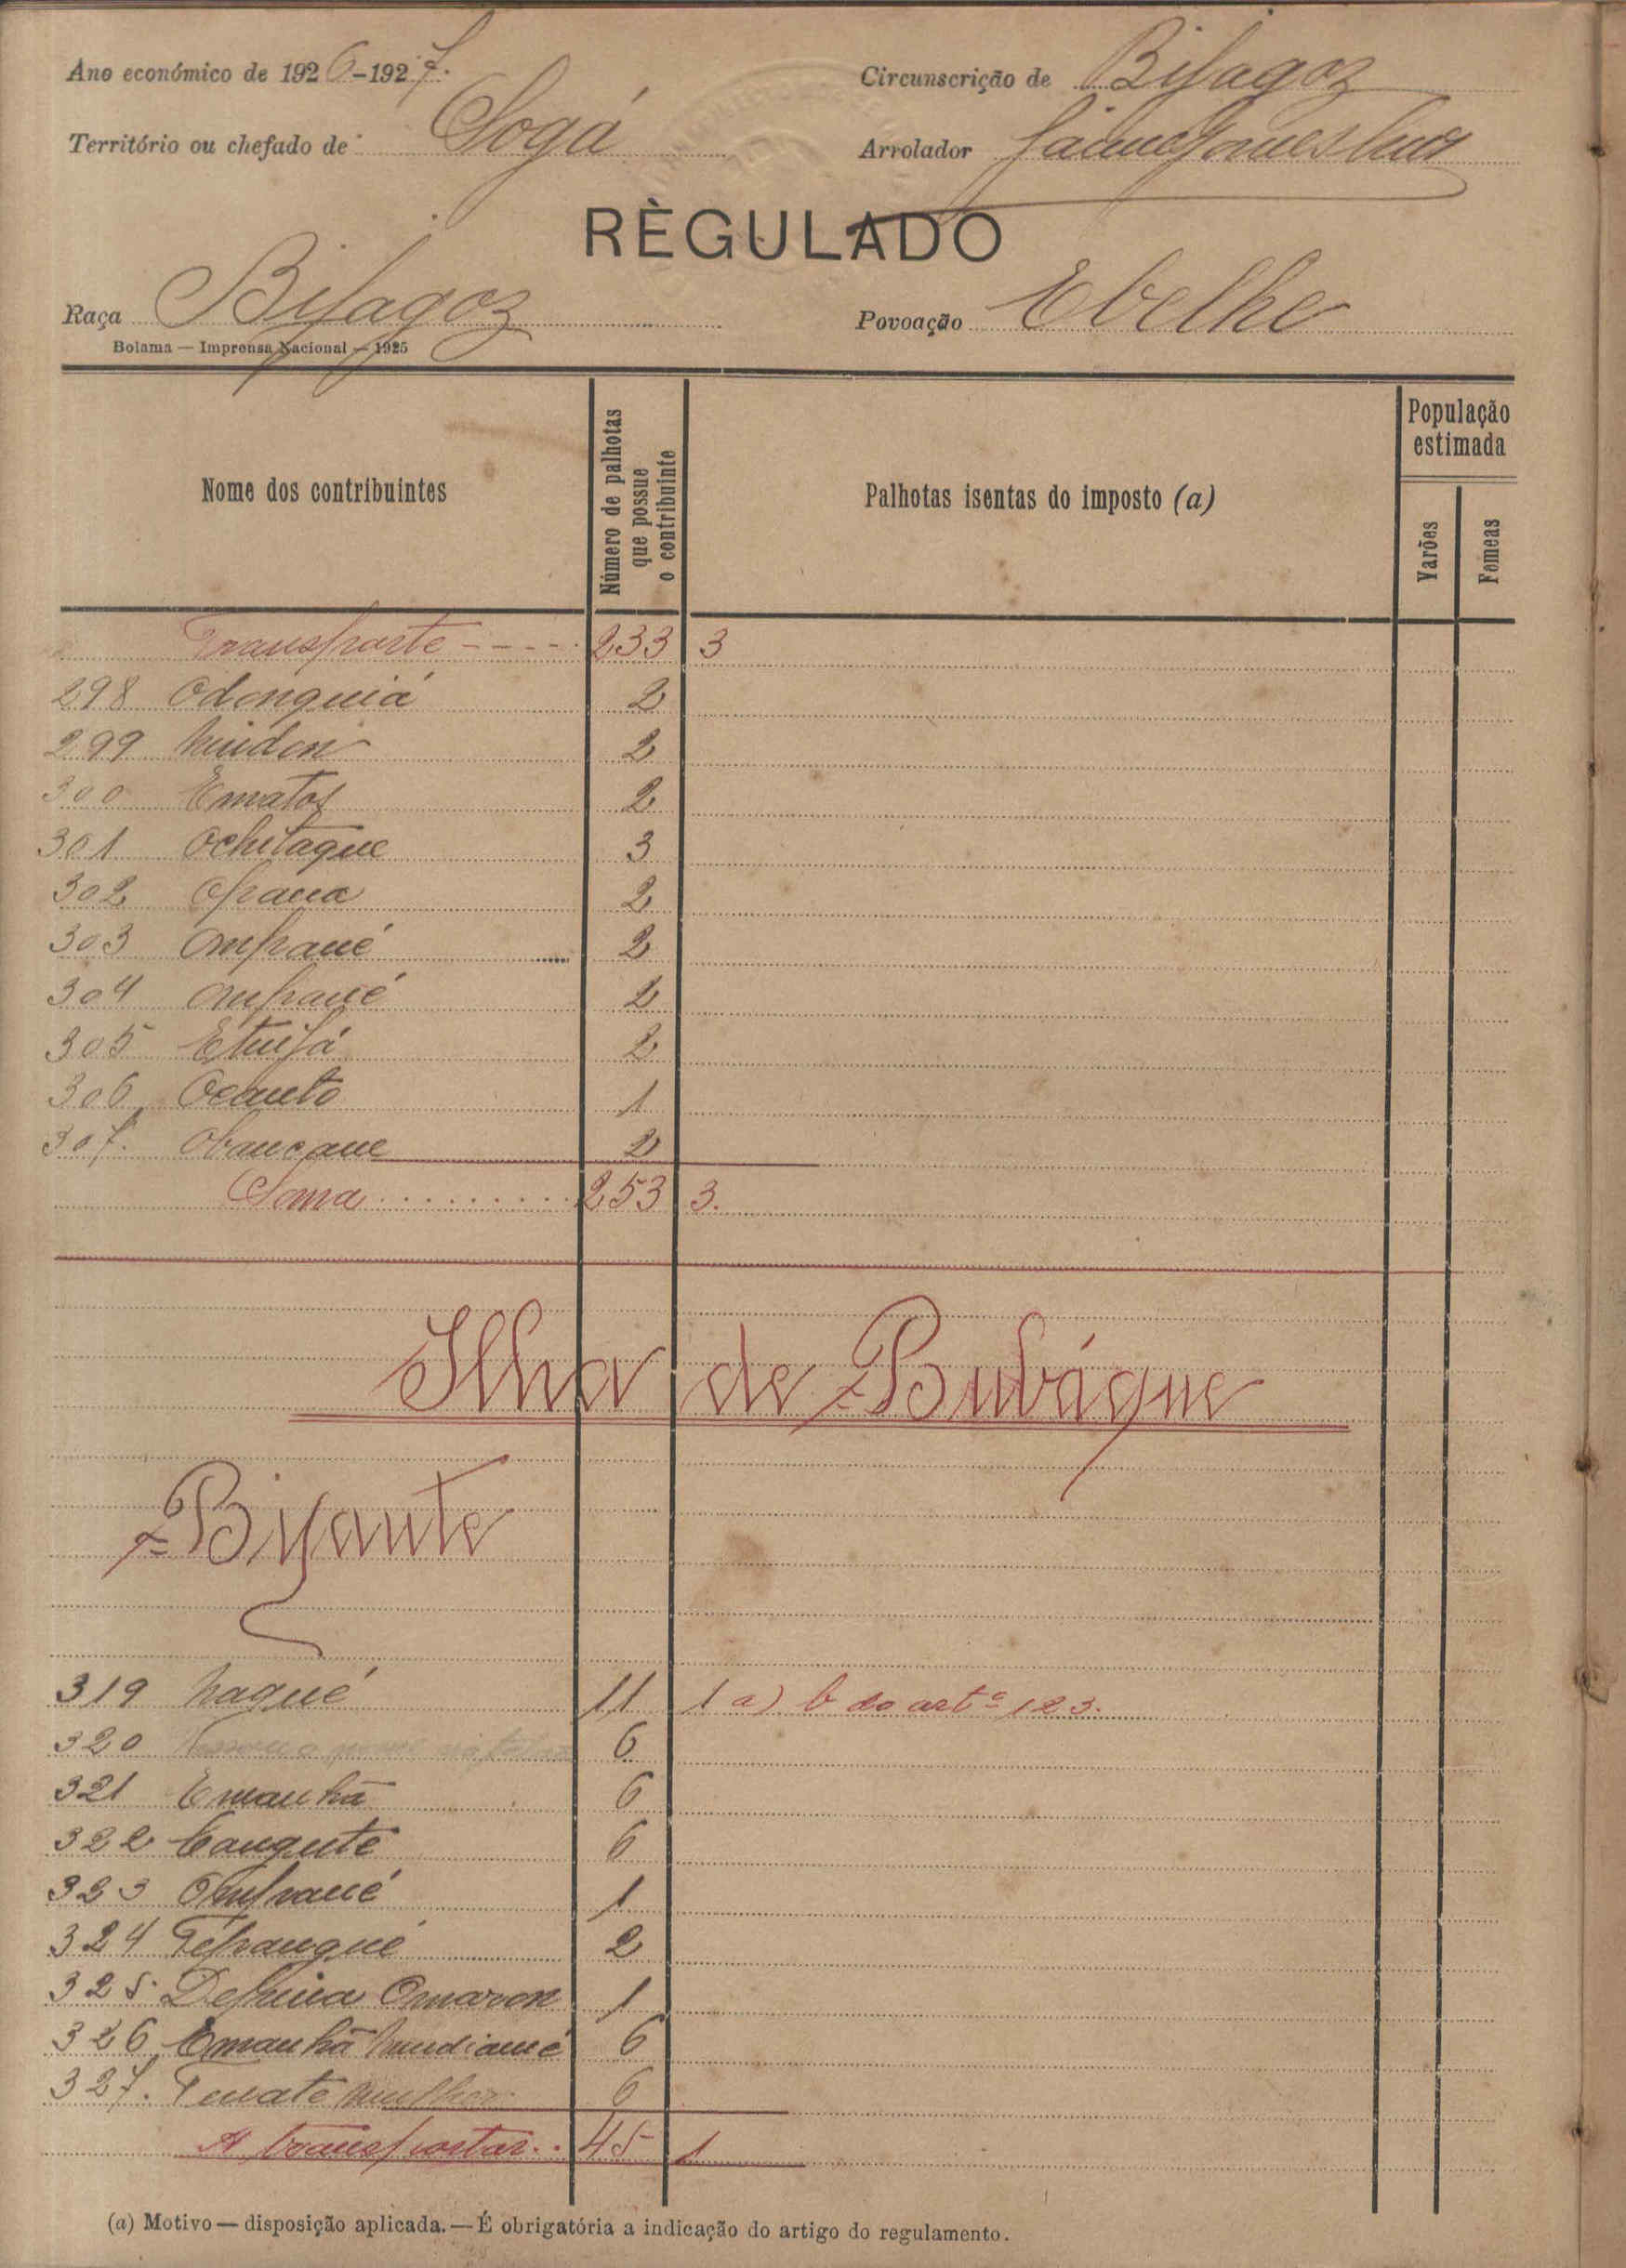 Ano económico de 1926-1927.
Circunscrição de Bijagoz
Território ou chefado de Sogá
Arrolador Jaime Gomes
RÈGULADO
Raça Bijagoz
Povoação Ebelhe
Bolama — Imprensa Nacional — 1925
Nome dos contribuintes
Número de palhotas que possue o contribuinte
Palhotas isentas do imposto (a)
População estimada
Varões
Femeas
Transporte - - - - 233 3
298 Odonquiá 2
299 2
300 Ematoj 2
301 Ochitaque 3
302 Opana 2
303 Ompané 2
304 Ompané 2
305 Etuijá 2
306 Ocanto 1
307. Obancane 2
Soma .......... 253 3.
Ilha de Bubáque
Bijante
319 Naqué 11 1 a) b do artº 123.
320 6
321 Emanhã 6
322 Canguté 6
323 Ompané 1
324 Tépangué 2
325 Omaron 1
326 Emanhã 6
327. mulher 6
A transportar.. 45 1
(a) Motivo — disposição aplicada. — É obrigatória a indicação do artigo do regulamento.